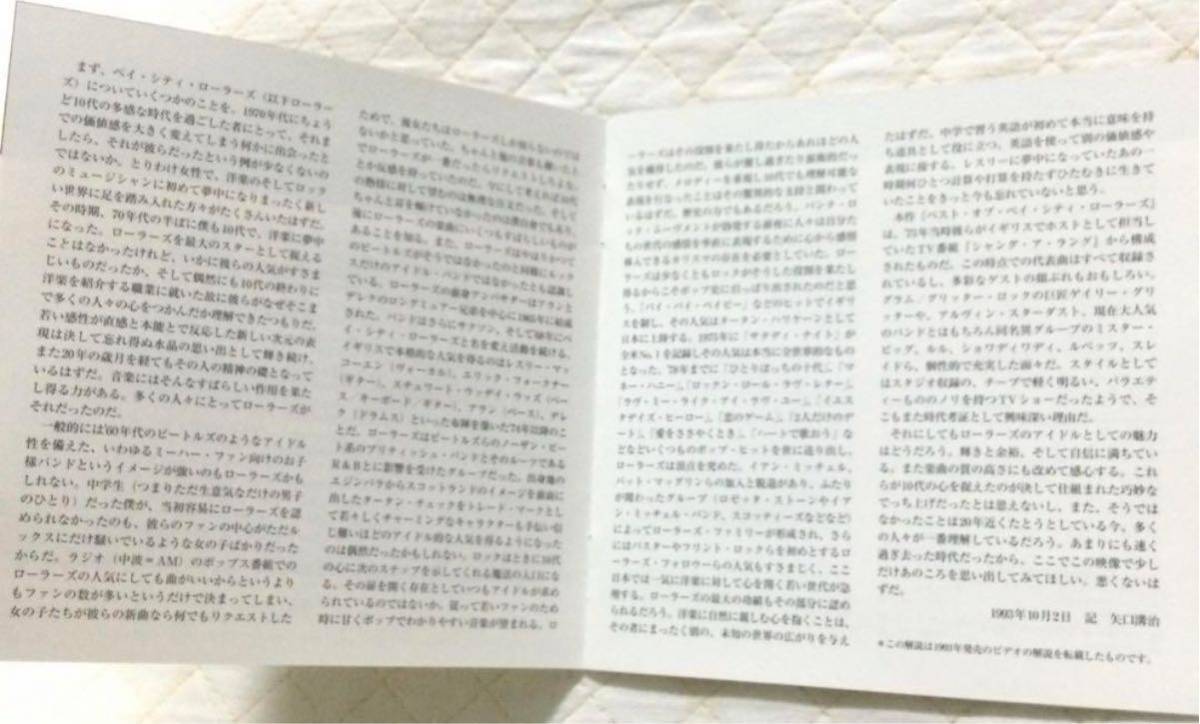 まず、ベイ・シティ・ローラーズ（以下ローラー
ズ）についていくつかのことを。1970年代にちょう
ど10代の多感な時代を過ごした者にとって、それま
での価値感を大きく変えてしまう何かに出会ったと
したら、それが彼らだったという例が少なくないの
ではないか。とりわけ女性で、洋楽のそしてロック
のミュージシャンに初めて夢中になりまったく新し
い世界に足を踏み入れた方々がたくさんいたはずだ。
その時期、70年代の半ばに僕も10代で、洋楽に夢中
になった。ローラーズを最大のスターとして捉える
ことはなかったけれど、いかに彼らの人気がすさま
じいものだったか、そして偶然にも10代の終わりに
洋楽を紹介する職業に就いた故に彼らがなぜそこま
で多くの人々の心をつかんだか理解できたつもりだ。
若い感性が直感と本能とで反応した新しい次元の表
現は決して忘れ得ぬ水晶の思い出として輝き続け、
また20年の歳月を経てもその人の精神の礎となって
いるはずだ。音楽にはそんなすばらしい作用を果た
し得る力がある。多くの人々にとってローラーズが
それだったのだ。
一般的には'60年代のビートルズのようなアイドル
性を備えた、いわゆるミーハー・ファン向けのお子
様バンドというイメージが強いのもローラーズかも
しれない。中学生（つまりただ生意気なだけの男子
のひとり）だった僕が、当初容易にローラーズを認
められなかったのも、彼らのファンの中心がただル
ックスにだけ騒いでいるような女の子ばかりだった
からだ。ラジオ（中波＝AM）のポップス番組での
ローラーズの人気にしても曲がいいからというより
もファンの数が多いというだけで決まってしまい、
女の子たちが彼らの新曲なら何でもリクエストした
ためで、彼女たちはローラーズしか知らないのでは
ないかと思っていた。ちゃんと他の音楽も聴いた上
でローラーズが一番だったらリクエストしろよな、
とか反感を持っていたのだ。
ある。また、ローラーズはやはりかつて
のビートルズがそうではなかったのと同様にルック
スだけのアイドル・バンドではなかったとも認識し
ている。ローラーズの前身アンバサダーはアランと
デレクのロングミュアー兄弟を中心に1965年に結成
された。バンドはさらにサクソン、そして68年にベ
イ・シティ・ローラーズと名を変え活動を続ける。
イギリスで本格的な人気を得るのはレスリー・マッ
コーエン（ヴォーカル）、エリック・フォークナー
（ギター）、スチュワート・ウッディ・ウッズ（ベー
ス／キーボード／ギター）、アラン（ベース）、デレ
ク（ドラムス）といった布陣を築いた'74年以降のこ
とだ。ローラーズはビートルズらのノーザン・ビー
ト系のブリティッシュ・バンドとそのルーツである
R＆Bとに影響を受けたグループだった。出身地の
エジンバラからスコットランドのイメージを前面に
出したタータン・チェックをトレード・マークとし
て若々しくチャーミングなキャラクターも手伝い信
じ難いほどのアイドル的な人気を得るようになった
のは偶然だったかもしれない。ロックはときに10代
の心に次のステップを示してくれる魔法の入口にな
る。その扉を開く存在としていつもアイドルが求め
られているのではないか。従って若いファンのため
時に甘くポップでわかりやすい音楽が望まれる。ロ
ーラーズはその役割を来たし得たからあれほどの人
気を獲得したのだ。彼らが難し過ぎたり前衛的だっ
たりせず、メロディーを重視し10代でも理解可能な
表現を行なったことはその驚異的な支持と関わって
いるはずだ。歴史の力でもあるだろう。パンク・ロ
ック・ムーヴメントが勃発する直前に人々は自分た
ちの世代の感情を率直に表現するために心から感情
移入できるカリスマの存在を必要としていた。ロー
ラーズは少なくともロックがそうした役割を果たし
得るからこそポップ史に迫っり出されたのだと思
う。「バイ・バイ・ベイビー」などのヒットでイギリ
スを制し、その人気はタータン・ハリケーンとして
日本に上陸する。1975年に「サタデイ・ナイト」が
全米No.1を記録しその人気は本当に全世界的なもの
となった。'78年までに「ひとりぼっちの十代」、「マ
ネー・ハニー」、「ロックン・ロール・ラヴ・レター」、
「ラヴ・ミー・ライク・アイ・ラヴ・ユー」、「イエス
タデイズ・ヒーロー」、「恋のゲーム」、「2人だけのデ
ート」、「愛をささやくとき」、「ハートで歌おう」な
どなどいくつものポップ・ヒットを世に送り出し、
ローラーズは頂点を究めた。イアン・ミッチェル、
パット・マッグリンらの加入と脱退があり、ふたり
が関わったグループ（ロゼッタ・ストーンやイア
ン・ミッチェル・バンド、スコッティーズなどなど）
によってローラーズ・ファミリーが形成され、さら
にはバスターやフリント・ロックらを初めとするロ
ーラーズ・フォロワーらの人気もすさまじく、ここ
日本では一気に洋楽に対して心を開く若い世代が急
増する。ローラーズの最大の功績もその部分に認め
られるだろう。洋楽に自然に親しむ心を抱くことは、
その者にまったく別の、未知の世界の広がりを与え
たはずだ。中学で習う英語が初めて本当に意味を持
ち道具として役に立つ、英語を使って別の価値感や
表現に接する。レスリーに夢中になっていたあの一
時期何ひとつ計算や打算を持たずひたむきに生きて
いたことをきっと今も忘れていないと思う。
本作『ベスト・オブ・ベイ・シティ・ローラーズ』
は、'75年当時彼らがイギリスでホストとして担当し
ていたTV番組『シャング・ア・ラング』から構成
されたものだ。この時点での代表曲はすべて収録さ
れているし、多彩なゲストの顔ぶれもおもしろい。
グラム／グリッター・ロックの巨匠ゲイリー・グリ
ッターや、アルヴィン・スターダスト、現在大人気
のバンドとはもちろん同名異グループのミスター・
ビッグ、ルル、ショワディワディ、ルベッツ、スレ
イドら、個性的で充実した面々だ。スタイルとして
はスタジオ収録の、テープで軽く明るい、バラエテ
ィーもののノリを持つTVショーだったようで、そ
こもまた時代考証として興味深い理由だ。
それにしてもローラーズのアイドルとしての魅力
はどうだろう。輝きと余裕、そして自信に満ちてい
る。また楽曲の質の高さにも改めて感心する。これ
らが10代の心を捉えたのが決して仕組まれた巧妙な
でっち上げだったとは思えないし、また、そうでは
なかったことは20年近くたとうとしている今、多く
の人々が一番理解しているだろう。あまりにも速く
過ぎ去った時代だったから、ここでこの映像で少し
だけあのころを思い出してみてほしい。悪くないは
ずだ。
1993年10月2日　記　矢口清治
＊この解説は1993年発売のビデオの解説を転載したものです。